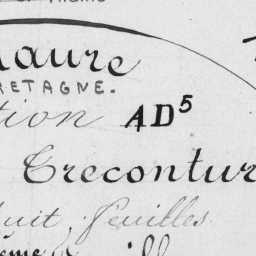 aure
RETAGNE.
tion AD⁵
Trecontur
huit feuilles